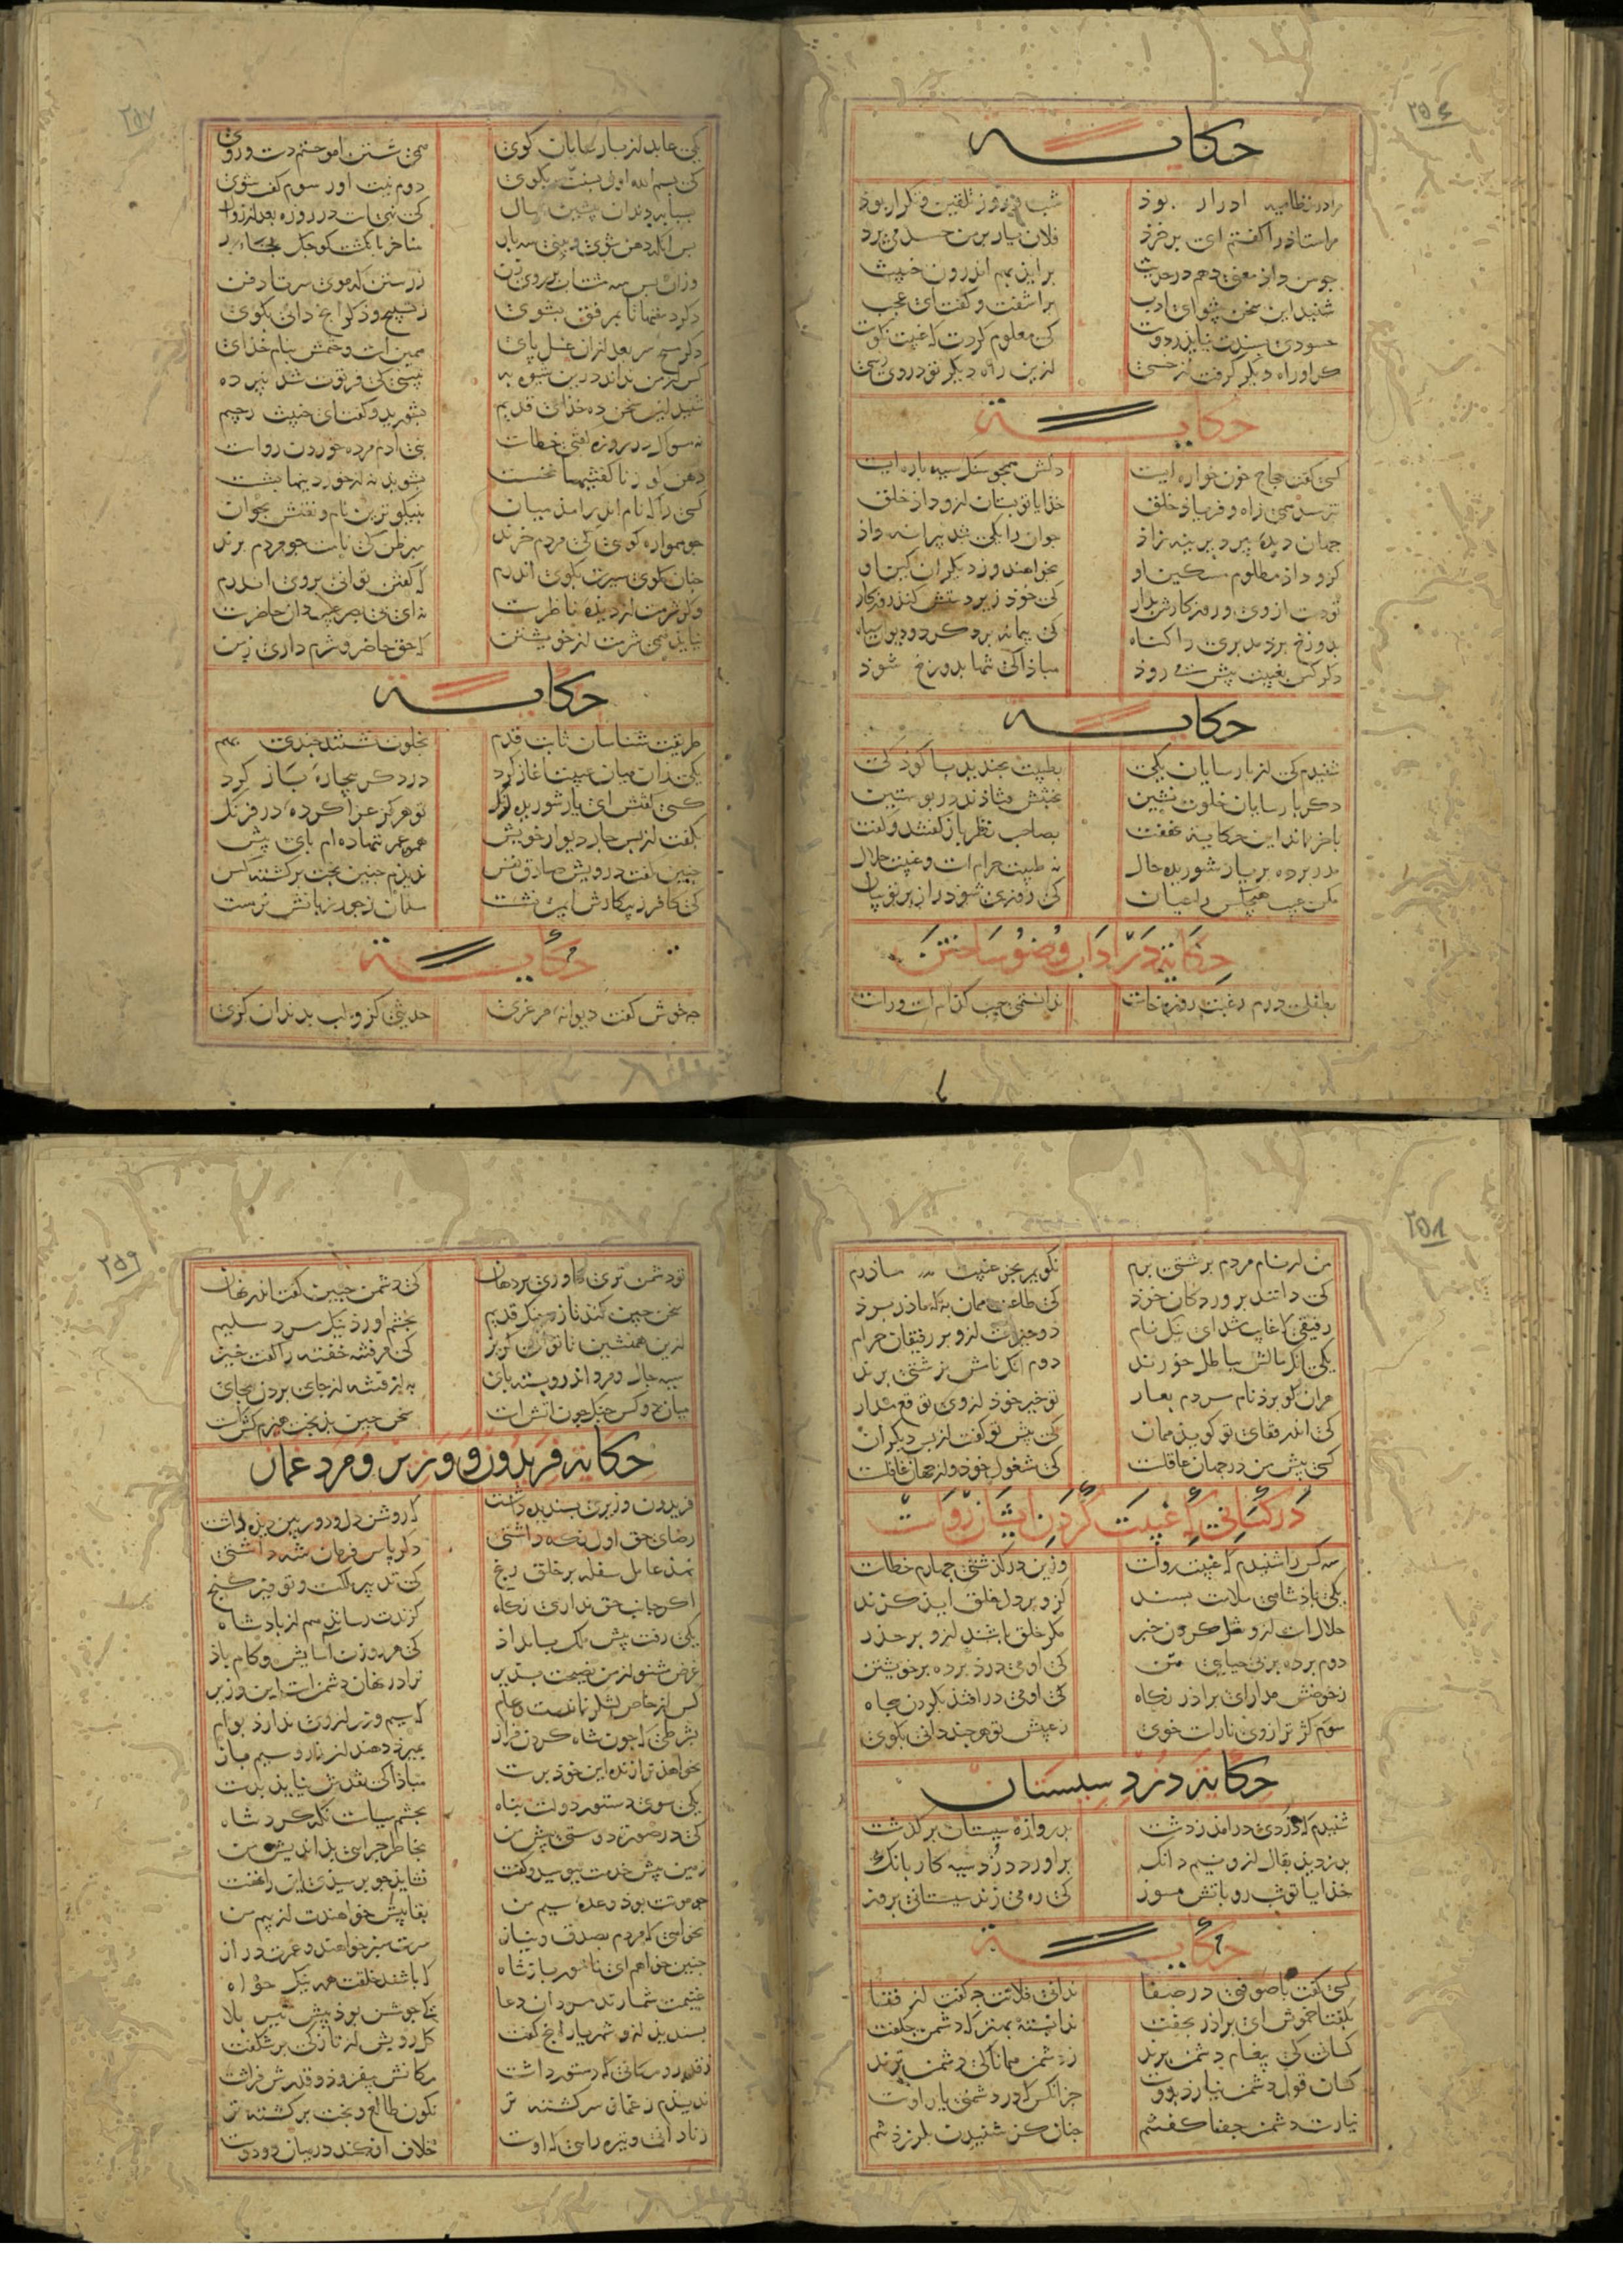 ۲۵۶
حکایــــة
مرا در نظامیه ادرار بوذ شب و روز تلقین و تکرار بوذ
مر استاد را کفتم ای بر خرذ فلان یار بر من حسد می برد
جو من داذ معنی دهم در حدیث بر اید بهم اندرون خبیث
شنید این سخن پیشوای ادب براشفت و کفت ای عجب
حسودی بسندت نیامذ ز دوست کی معلوم کردت که غیبت نکوست
کر او راه دیکر کرفت از خسی ازین راه دیکر تو در وی رسی
حکایــــة
کسی کفت حجاج خون خواره ایست دلش همجو سنک سیه باره ایست
نترسد همی زاه و فریاذ خلق خدایا تو بستان ازو داذ خلق
جهان دیدۀ پیر دیرینه زاذ جوان را یکی بند پیرانه داذ
کزو داذ مظلوم مسکین او بخواهند و از دیکران کین او
تو دست از وی و روزکارش بدار کی خود زیر دستش کند روزکار
بدوزخ برد مدبری را کناه کی پیمانه پر کرد و دیوان سیاه
دکر کس بغیبت پیش می رود مباذا کی تنها بدوزخ شوذ
حکایــــة
شنیدم کی از پارسایان یکی بطیبت بخندید با کوذکی
دکر پارسایان خلوت نشین بغیبش فتاذند در پوستین
باخر نماند این حکایت نهفت بصاحب نظر باز کفتند و کفت
مدر برده بر یار شوریده حال نه طیبت حرام است و غیبت حلال
حکایة در اداب وضو ساختن
بطفلی درم رغبت روزه خاست ندانستمی جب کدام است و راست
۲۵۷
یکی عابد از پارسایان کوی همی شستن اموختم دست و روی
کی بسم الله اول بسنت بکوی دوم نیت اور سوم کف بشوی
بس انکه دهن شوی و بینی سه بار مناخر بانکشت کوجک بخار
وزان بس سه مشت آب بر روی زن ز رستن که موی سر تا ذقن
دکر دستها تا بمرفق بشوی ز تسبیح و ذکر انج دانی بکوی
دکر مسح سر بعد ازان غسل پای همین است و ختمش بنام خذای
کس از من نداند درین شیوه به نبینی کی فرتوت شد پیر ده
شنید این سخن ده خذای قدیم بشورید و کفت ای خبیث رجیم
نه مسواک در روزه کفتی خطاست بنی ادم مرده خوردن رواست
دهن کو ز ناکفتنیها نخست بشوید نه از خوردنیها بشست
کسی را که نام امد اندر میان بنیکوترین نام و نعتش بخوان
جو همواره کوی کی مردم خرند مبر ظن کی نامت جو مردم برند
جنان کوی سیرت بکوی اندرم که کفتن توانی بروی اندرم
وکر شرمت از دیدۀ ناظرست نه ای بی بصر غیب دان حاضرست
نیاید همی شرمت از خویشتن که حق حاضر و شرم داری ز من
حکایــــة
طریقت شناسان ثابت قدم بخلوت نشستند جندی بهم
یکی زان میان غیبت اغاز کرد در ذکر بیجارۀ باز کرد
کسی کفتش ای یار شوریده رنک تو هرکز غزا کردۀ در فرنک
بکفت از بس جار دیوار خویش همه عمر ننهاده ام پای پیش
جنین کفت درویش صادق نفس ندیدم جنین بخت برکشته کس
کی کافر ز پیکارش ایمن نشست مسلمان ز جور زبانش نرست
حکایــــة
جه خوش کفت دیوانۀ مرغزی حدیثی کزو لب بدندان کزی
۲۵۸
من ار نام مردم بزشتی برم نکویم بجز غیبت مادرم
کی دانند برورد کان خرذ کی طاعت همان به که ماذر برذ
رفیقی که غایب شد ای نیک نام دو جیزست ازو بر رفیقان حرام
یکی انک مالش بباطل خورند دوم انک نامش بزشتی برند
هران کو برذ نام مردم بعار تو خیر خود از وی توقع مدار
کی اندر قفای تو کویذ همان کی پیش تو کفت از بس دیکران
کسی پیش من در جهان عاقلست کی مشغول خود و از جهان غافلست
در کسانی که غیبت کردن ایشان رواست
سه کس را شنیدم که غیبت رواست وزین در کذشتی جهارم خطاست
یکی پاذشاهی ملامت بسند کزو بر دل خلق اید کزند
حلالست ازو نقل کردن خبر مکر خلق باشند ازو بر حذر
دوم برده بر بی حیایی متن کی او می درد برده بر خویشتن
ز حوضش مدار ای براذر نکاه کی او می در افتذ بکردن بجاه
سوم کژ ترازوی ناراست خوی ز عیبش تو هر جند دانی بکوی
حکایة دزد سیستان
شنیدم که دزدی در امد ز دشت بدروازۀ سیستان بر کذشت
بدزدید بقال ازو نیم دانک براورد دزد سیه کار بانک
خدایا تو شب رو باتش مسوز کی ره می زند سیستانی بروز
حکایــــة
کسی کفت با صوفی در صفا ندانی فلانت جه کفت از قفا
بکفتا خموش ای براذر بخفت ندانسته بهتر که دشمن جه کفت
کسانی کی پیغام دشمن برند ز دشمن همانا کی دشمن ترند
کسی قول دشمن نیارد بدوست جز انکس که در دشمنی یار اوست
نیارست دشمن جفا کفتنم جنان کز شنیدن بلرزذ تنم
۲۵۹
تو دشمن تری کاوری بر دهان کی دشمن جنین کفت اندر نهان
سخن جین کند تازه جنک قدیم بخشم اورذ نیک مرد سلیم
ازین همنشین تا توانی کریز کی مر فتنه خفته را کفت خیز
سیه جال و مرد اندرو بسته بای به از فتنه از جای بردن بجای
میان دو کس جنک جون اتش است سخن جین بذبخت هیزم کش است
حکایة فریدون و وزیرش و مرد غماز
فریدون وزیری بسندیده داشت که روشن دل و دوربین دیذه داشت
رضای حق اول نکه داشتی دکر پاس فرمان شه داشتی
نهد عامل سفله بر خلق رنج کی تدبیر ملکست و توفیر کنج
اکر جانب حق نداری نکاه کزندت رساند هم از باذشاه
یکی رفت پیش ملک بامداذ کی هر روزت اسایش و کام باذ
غرض مشنو از من نصیحت بذیر ترا در نهان دشمن است این وزیر
کس از خاص لشکر نماندست و عام که سیم و زر از وی ندارذ بوام
بشرطی که جون شاه کردن فراز بمیرذ دهند ان زر و سیم باز
نخواهد ترا زنده این خوذ برست مباذا کی نقدش نیاید بدست
یکی سوی دستور دولت پناه بجشم سیاست نکه کرد شاه
کی در صورت دوستی پیش من بخاطر جرایی بذاندیش من
زمین پیش تختش ببوسید و کفت نشاید جو برسیدی اکنون نهفت
جو موتت بوذ وعدۀ سیم من بقا بیش خواهندت از بیم من
نخواهی که مردم بصدق و نیاز سرت سبز خواهند و عمرت دراز
غنیمت شمارند مردان دعا که جوشن بوذ پیش تیر بلا
بسندید ازو شهریار انج کفت کل رویش از تازکی بر شکفت
ز قدر و مکانی که دستور داشت مکانش بیفزوذ و قدرش فراشت
ندیدم ز غماز سرکشته تر نکون طالع و بخت برکشته تر
ز نادانی و تیره رایی که اوست خلاف افکند در میان دو دوست